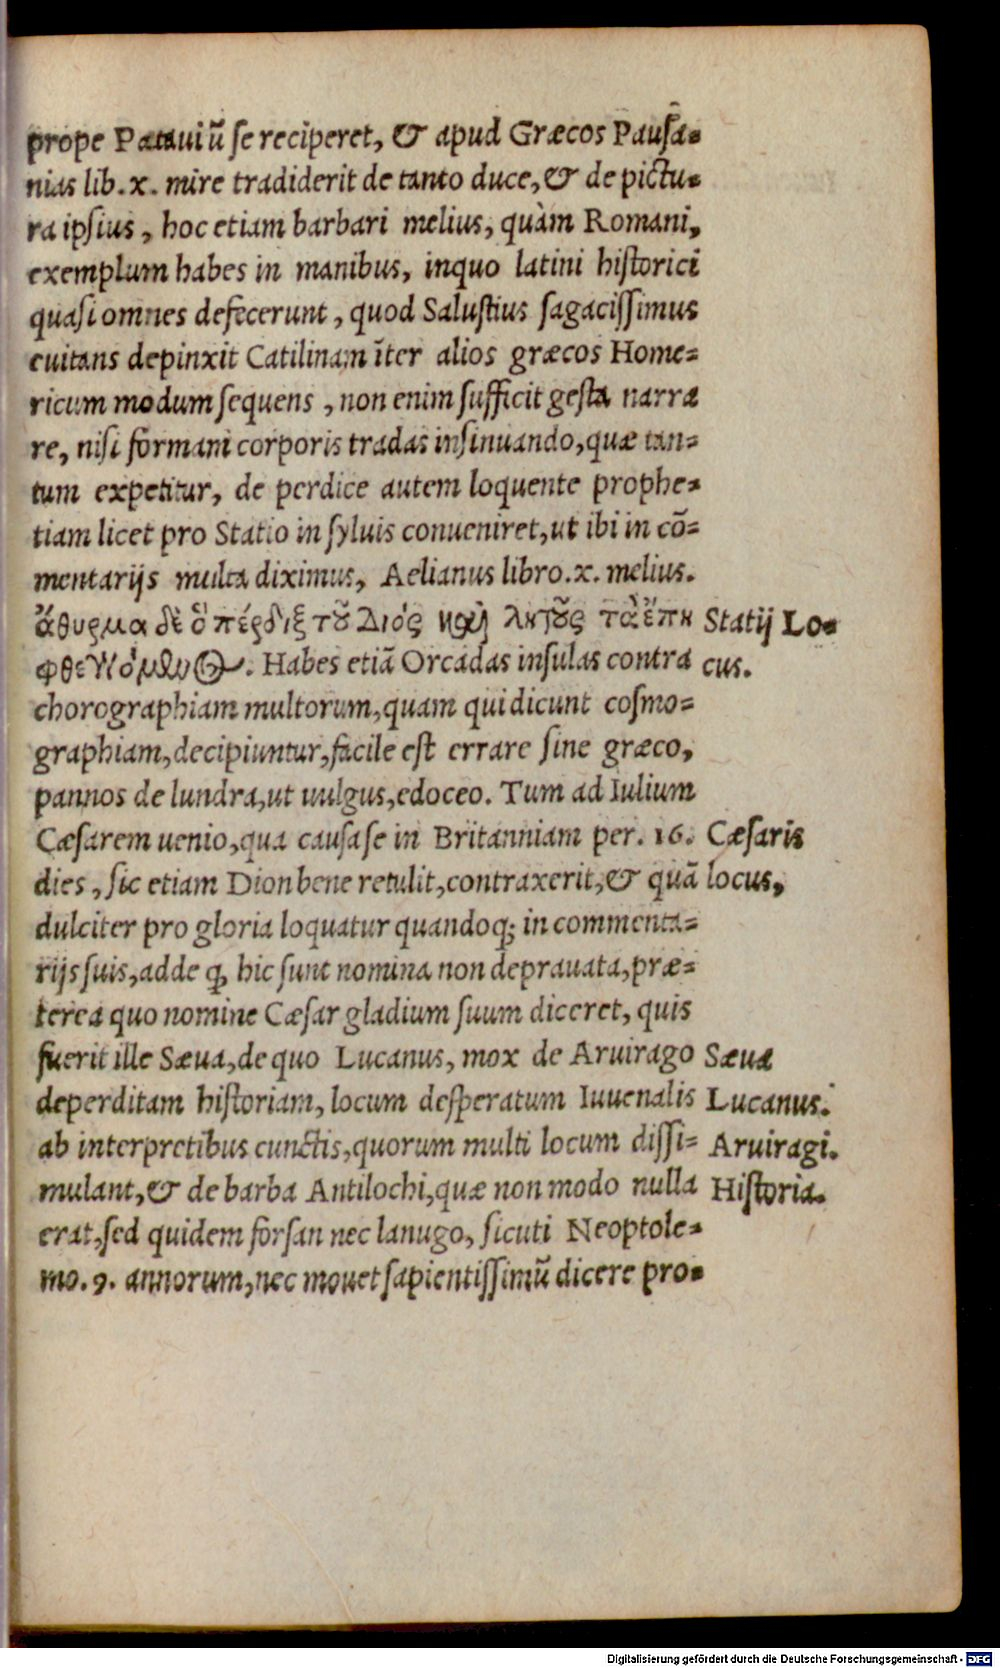 prope Patauiū se reciperet, & apud Græcos Pausa-
nias lib. x. mire tradiderit de tanto duce, & de pictu-
ra ipsius, hoc etiam barbari melius, quàm Romani,
exemplum habes in manibus, inquo latini historici
quasi omnes defecerunt, quod Salustius sagacissimus
euitans depinxit Catilinam īter alios græcos Home-
ricum modum sequens, non enim sufficit gesta narra
re, nisi formam corporis tradas insinuando, quæ tan-
tum expetitur, de perdice autem loquente prophe-
tiam licet pro Statio in syluis conueniret, ut ibi in cō-
mentarijs multa diximus, Aelianus libro. x. melius.
ἄθυρμα δὲ ὁ πέρδιξ τοῦ Διός καὶ λητοῦς τὰ ἔπη Statij Lo-
Habes etiā Orcadas insulas contra cus.
chorographiam multorum, quam qui dicunt cosmo-
graphiam, decipiuntur, facile est errare sine græco,
pannos de lundra, ut uulgus, edoceo. Tum ad Iulium
Cæsarem uenio, qua causa se in Britanniam per. 16. Cæsaris
dies, sic etiam Dion bene retulit, contraxerit, & quā locus,
dulciter pro gloria loquatur quandoq; in commenta-
rijs suis, adde ꝙ hic sunt nomina non deprauata, præ-
terea quo nomine Cæsar gladium suum diceret, quis
fuerit ille Sæua, de quo Lucanus, mox de Aruirago Sæua
deperditam historiam, locum desperatum Iuuenalis Lucanus.
ab interpretibus cunctis, quorum multi locum dissi- Aruiragi.
mulant, & de barba Antilochi, quæ non modo nulla Historia.
erat, sed quidem forsan nec lanugo, sicuti Neoptole-
mo. 9. annorum, nec mouet sapientissimū dicere pro-
Digitalisierung gefördert durch die Deutsche Forschungsgemeinschaft - DFG